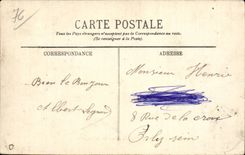 76
CARTE POSTALE
Tous les Pays étrangers n'acceptent pas la Correspondance au recto.
(Se renseigner à la Poste).
CORRESPONDANCE
ADRESSE
Bien le Bonjour
Albert
Monsieur Henri
8 Rue de la Croix